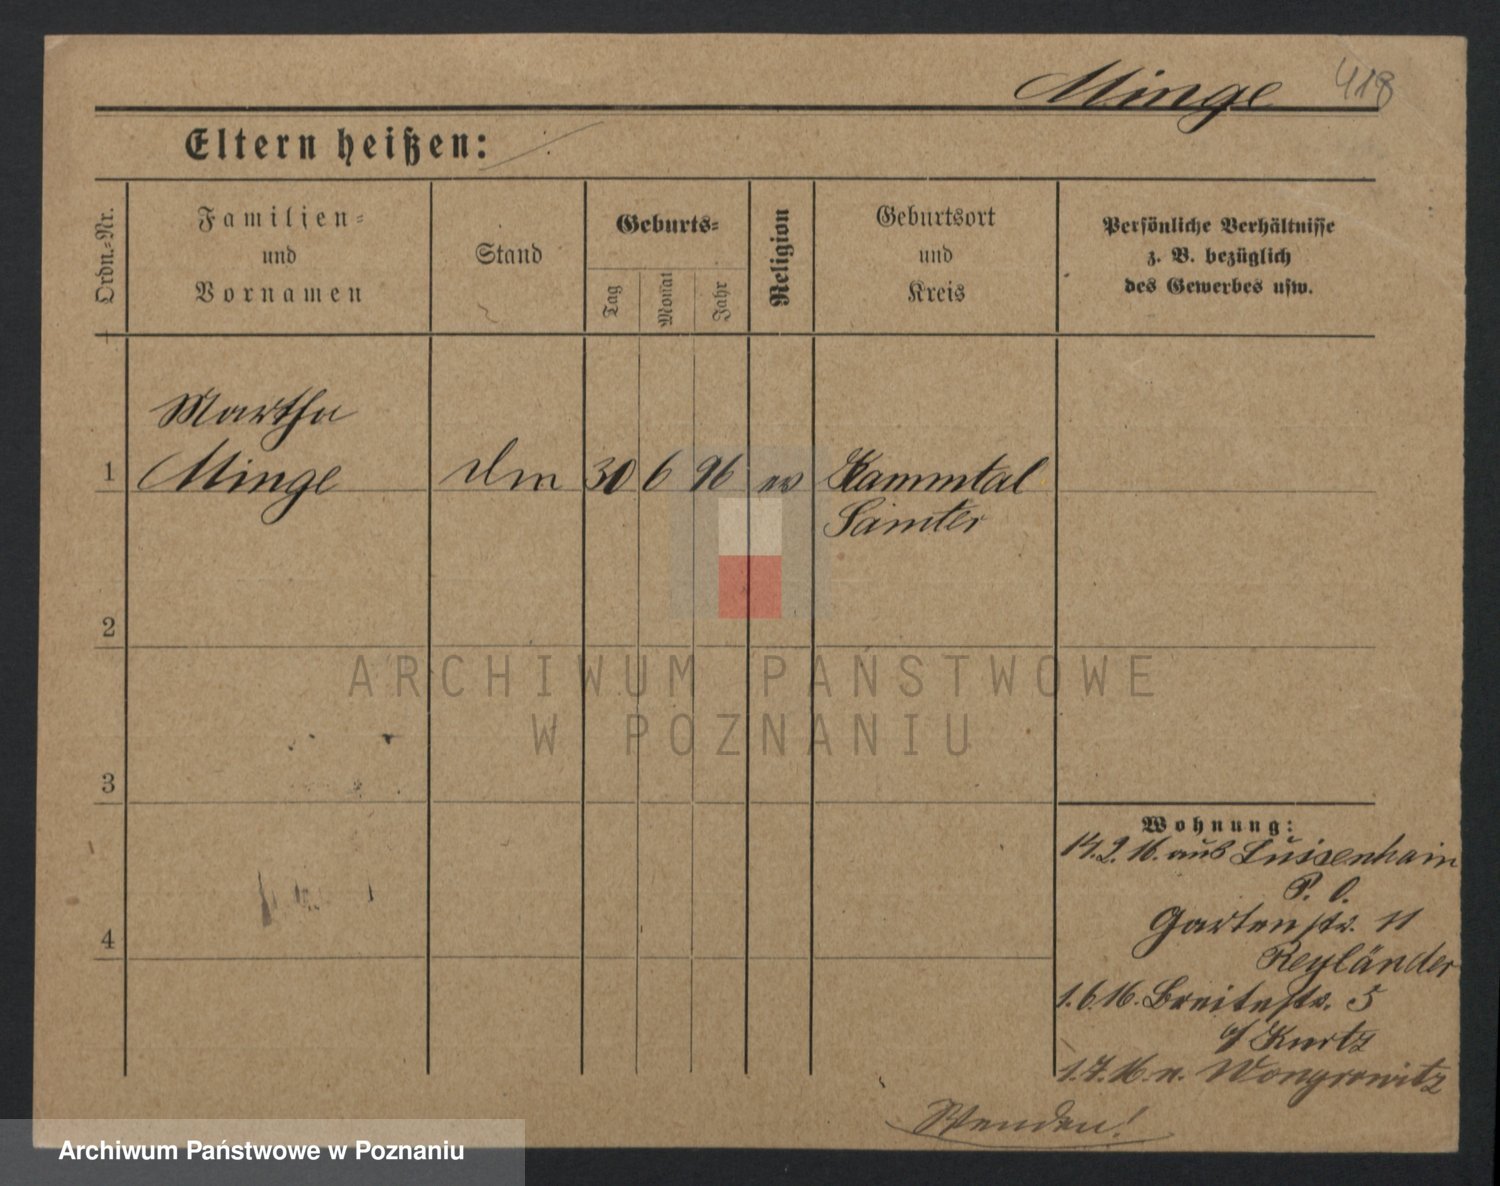 Minge 418
Eltern heißen:
Ordn.=Nr.
Familien=
und
Vornamen
Stand
Geburts=
Tag
Monat
Jahr
Religion
Geburtsort
und
Kreis
Persönliche Verhältnisse
z. B. bezüglich
des Gewerbes usw.
Martha
1 Minge 30 6 96 ev Kammtal
Samter
2
3
4
Wohnung:
14.2.16. aus Luisenhain
P. O.
Gartenstr. 11
Reyländer
1.6.16. Breitestr. 5
b/ Kurtz
1.7.16. n. Wongrowitz
Wenden!
ARCHIWUM PAŃSTWOWE
W POZNANIU
Archiwum Państwowe w Poznaniu